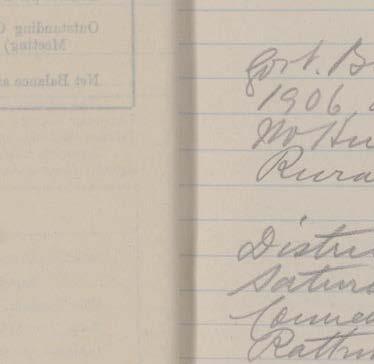 Outstanding
Meeting)
Net Balance
Govt. B
1906
No Hu
Rura
Distri
Saturd
Rattn